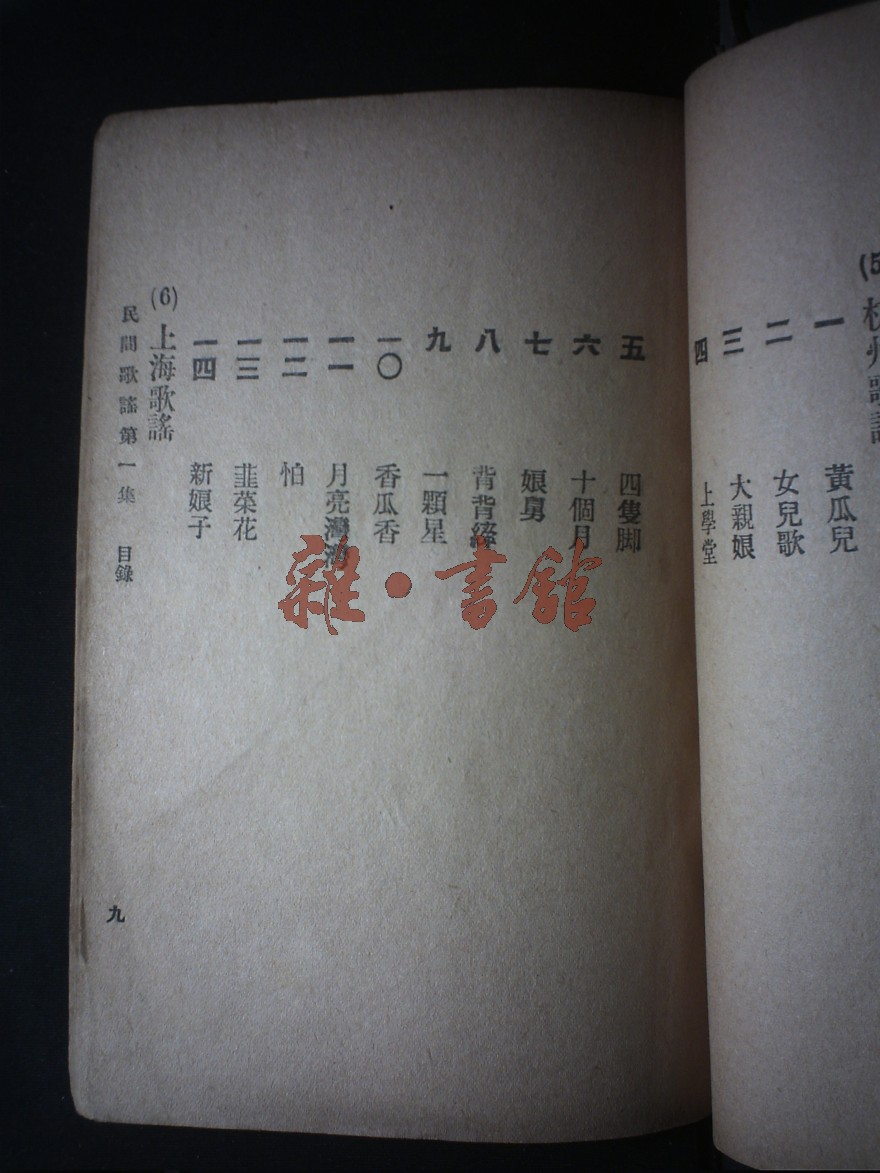 (5)杭州歌謠
一 黃瓜兒
二 女兒歌
三 大親娘
四 上學堂
五 四隻脚
六 十個月
七 娘舅
八 背背
九 一顆星
一〇 香瓜香
一一 月亮灣灣
一二 怕
一三 韭菜花
一四 新娘子
(6)上海歌謠
民間歌謠第一集 目錄
九
雜·書館